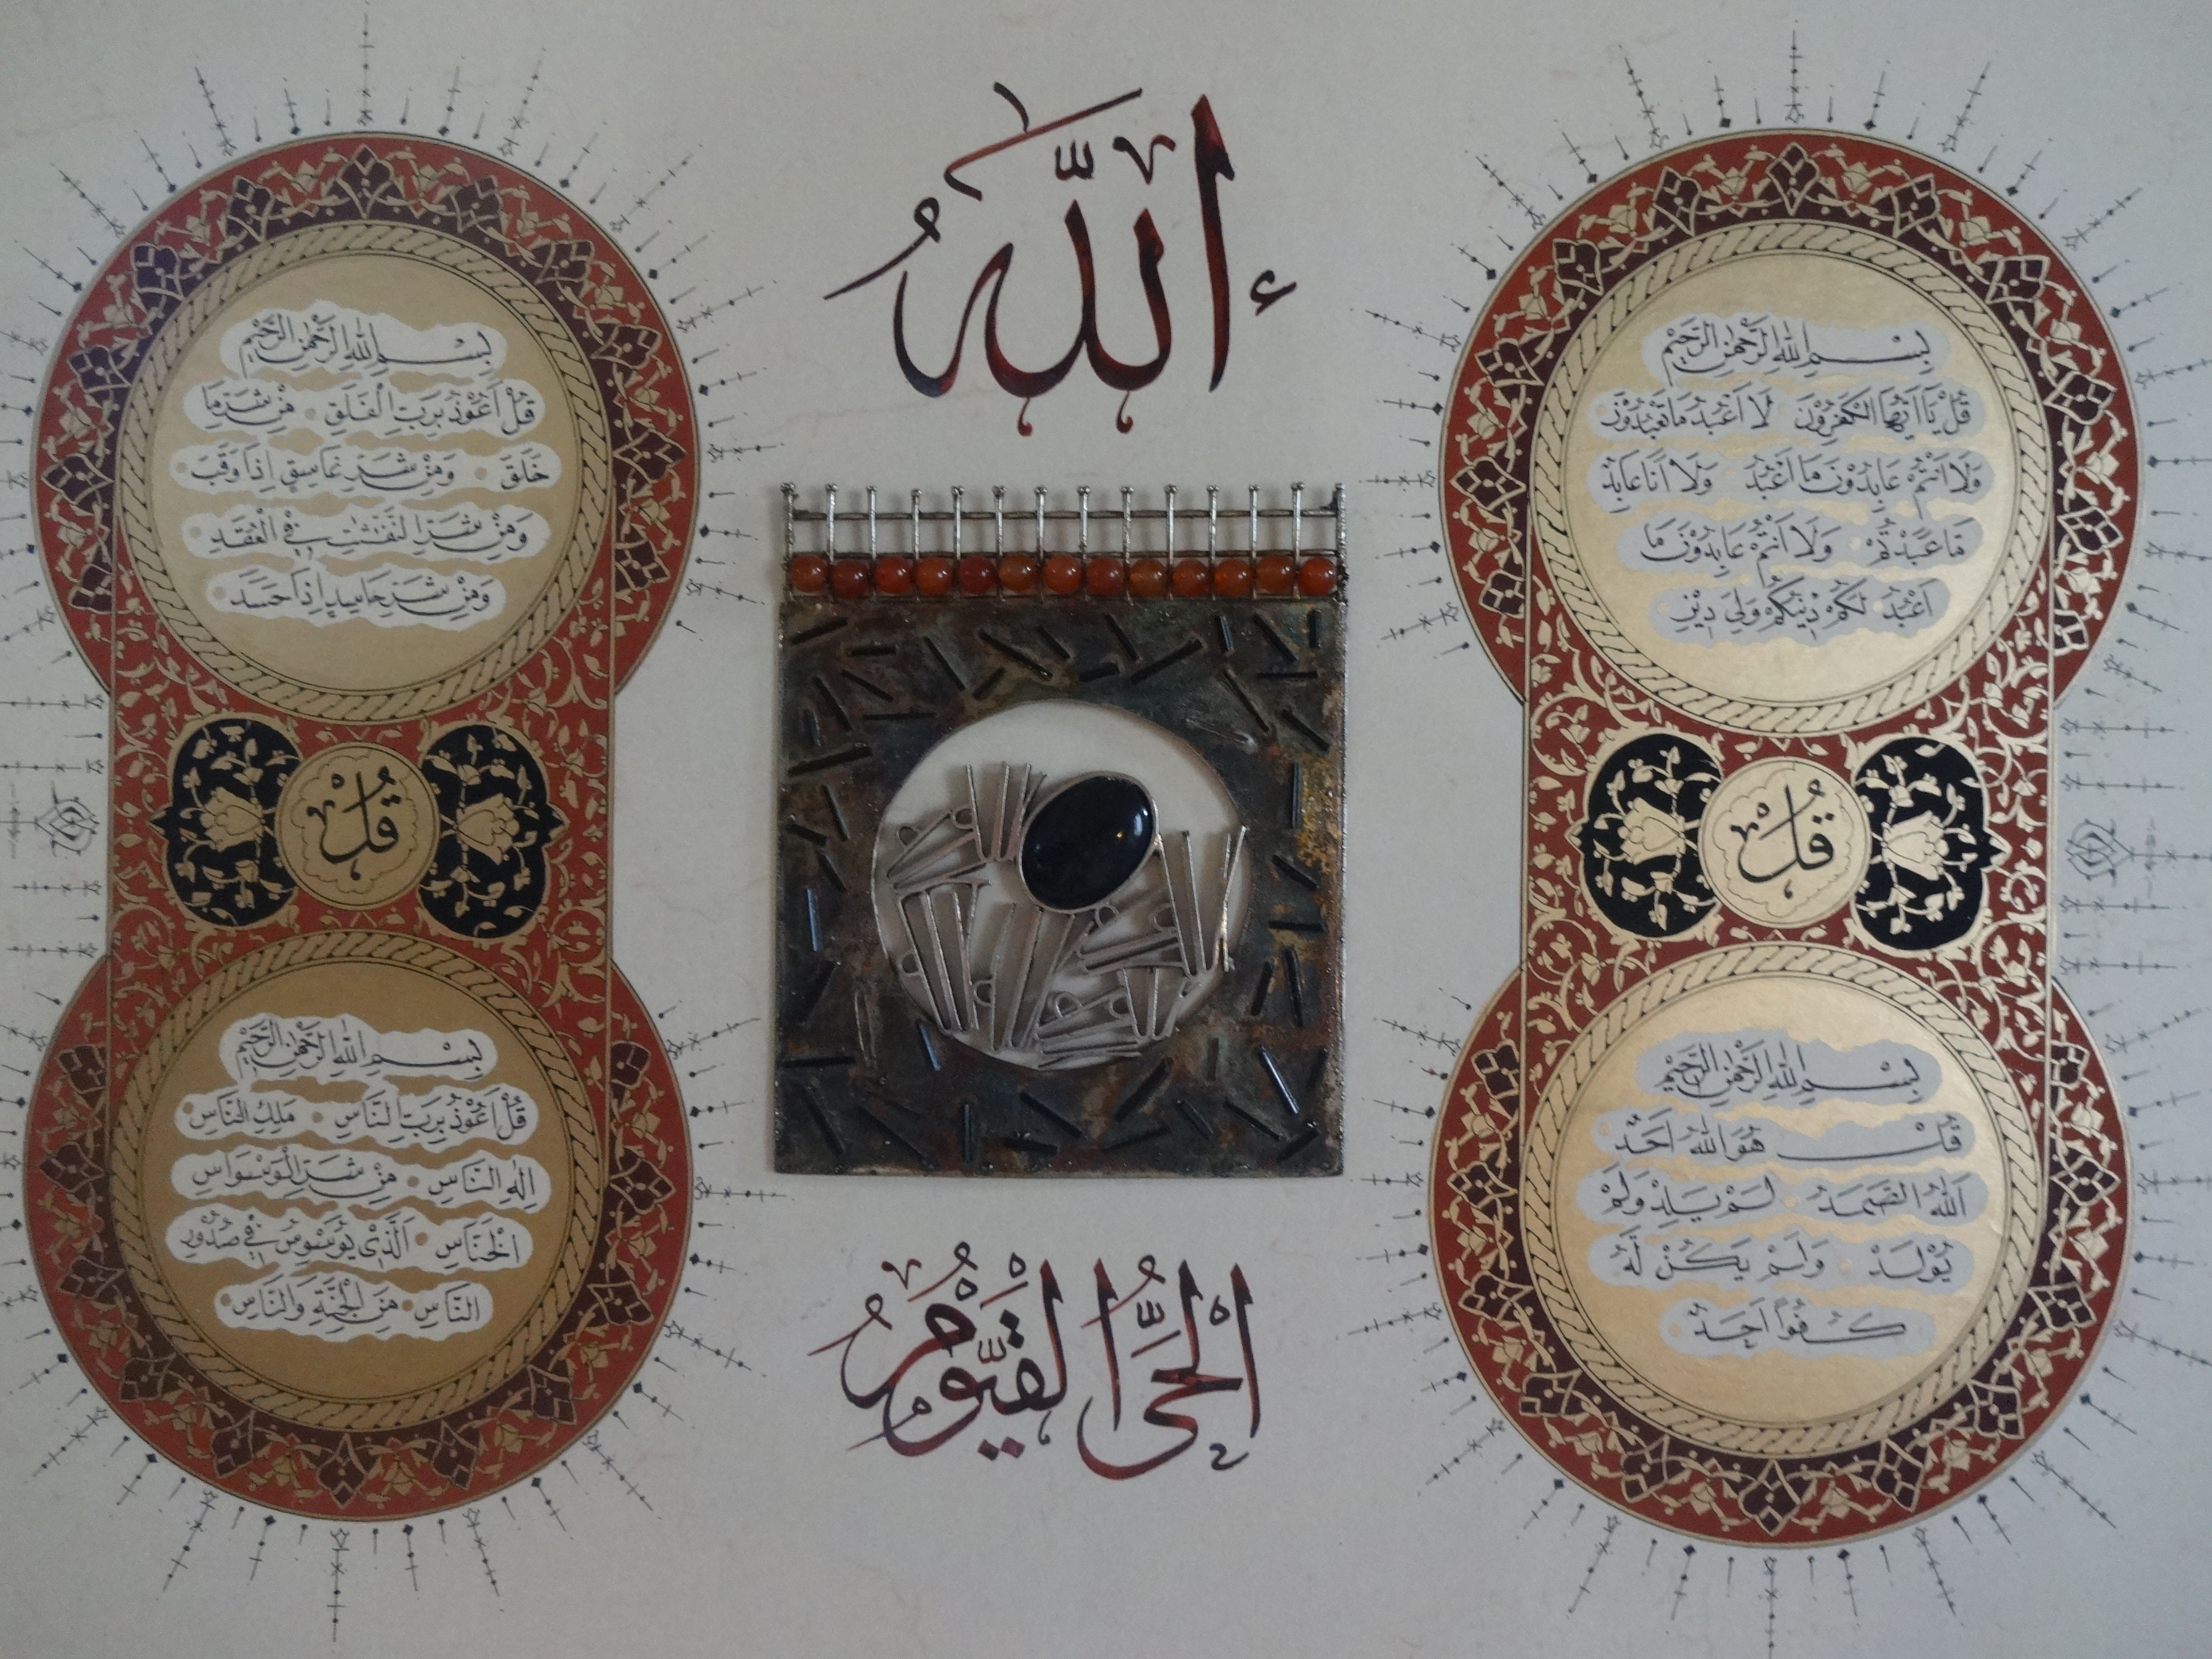 اَللّٰهُ
بِسْمِ اللّٰهِ الرَّحْمٰنِ الرَّحِيْمِ
قُلْ يَآ اَيُّهَا الْكٰفِرُوْنَ لَآ اَعْبُدُ مَا تَعْبُدُوْنَ
وَلَآ اَنْتُمْ عَابِدُوْنَ مَآ اَعْبُدُ وَلَآ اَنَا۬ عَابِدٌ
مَا عَبَدْتُّمْ وَلَآ اَنْتُمْ عَابِدُوْنَ مَآ
اَعْبُدُ لَكُمْ دِيْنُكُمْ وَلِيَ دِيْنِ
قُلْ
بِسْمِ اللّٰهِ الرَّحْمٰنِ الرَّحِيْمِ
قُلْ هُوَ اللّٰهُ اَحَدٌ
اَللّٰهُ الصَّمَدُ لَمْ يَلِدْ وَلَمْ
يُوْلَدْ وَلَمْ يَكُنْ لَّهُ
كُفُوًا اَحَدٌ
بِسْمِ اللّٰهِ الرَّحْمٰنِ الرَّحِيْمِ
قُلْ اَعُوْذُ بِرَبِّ الْفَلَقِ مِنْ شَرِّ مَا
خَلَقَ وَمِنْ شَرِّ غَاسِقٍ اِذَا وَقَبَ
وَمِنْ شَرِّ النَّفّٰثٰتِ فِي الْعُقَدِ
وَمِنْ شَرِّ حَاسِدٍ اِذَا حَسَدَ
قُلْ
بِسْمِ اللّٰهِ الرَّحْمٰنِ الرَّحِيْمِ
قُلْ اَعُوْذُ بِرَبِّ النَّاسِ مَلِكِ النَّاسِ
اِلٰهِ النَّاسِ مِنْ شَرِّ الْوَسْوَاسِ
الْخَنَّاسِ اَلَّذِيْ يُوَسْوِسُ فِيْ صُدُوْرِ
النَّاسِ مِنَ الْجِنَّةِ وَالنَّاسِ
اَلْحَيُّ الْقَيُّوْمُ